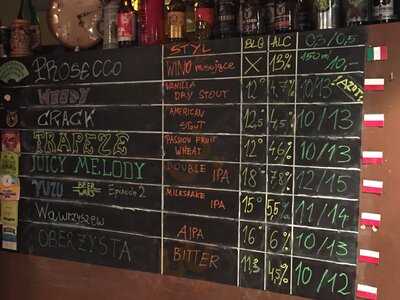 STYL BLG ALC 0,3/0,5
PROSECCO WINO musujące X 13% 150ml 10,-
WEEDY VANILLA DRY STOUT 12° 4,7% 10/13 +AZOT
CRACK AMERICAN STOUT 12,5 4,5% 10/13
TRAPEZE PASSION FRUIT WHEAT 12° 4,6% 10/13
JUICY MELODY DOUBLE IPA 18° 7,8% 12/15
YUZU Epizode 2 MILKSHAKE IPA 15° 5,5% 11/14
Wawrzyszew AIPA 16° 6% 10/13
OBERŻYSTA BITTER 11,3 4,5% 10/12